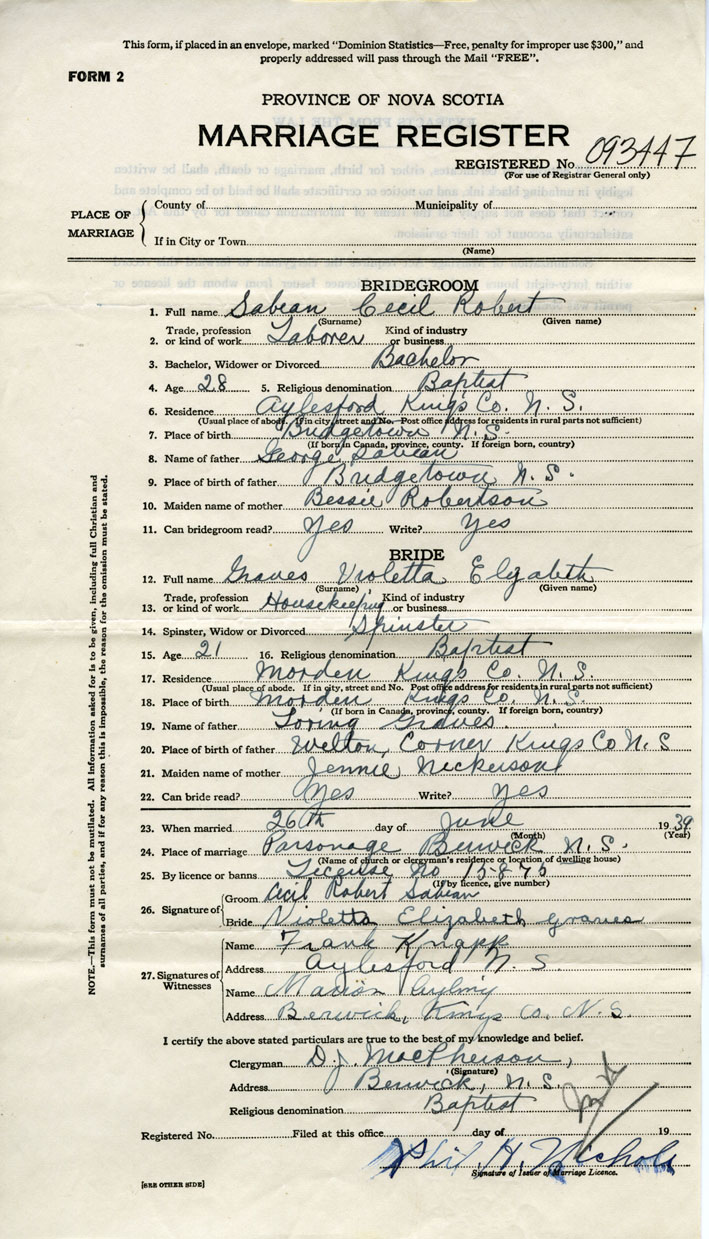 This form, if placed in an envelope, marked "Dominion Statistics—Free, penalty for improper use $300," and
properly addressed will pass through the Mail "FREE".
FORM 2
PROVINCE OF NOVA SCOTIA
MARRIAGE REGISTER
REGISTERED No. 093447
(For use of Registrar General only)
PLACE OF MARRIAGE
County of Municipality of
If in City or Town
(Name)
BRIDEGROOM
1. Full name Sabean Cecil Robert
(Surname) (Given name)
2. Trade, profession or kind of work Laborer Kind of industry or business
3. Bachelor, Widower or Divorced Bachelor
4. Age 28 5. Religious denomination Baptist
6. Residence Aylesford Kings Co. N. S.
(Usual place of abode. If in city, street and No. Post office address for residents in rural parts not sufficient)
7. Place of birth Bridgetown N. S.
(If born in Canada, province, county. If foreign born, country)
8. Name of father George Sabean
9. Place of birth of father Bridgetown N. S.
10. Maiden name of mother Bessie Robertson
11. Can bridegroom read? Yes Write? Yes
BRIDE
12. Full name Graves Violetta Elizabeth
(Surname) (Given name)
13. Trade, profession or kind of work Housekeeping Kind of industry or business
14. Spinster, Widow or Divorced Spinster
15. Age 21 16. Religious denomination Baptist
17. Residence Morden Kings Co. N. S.
(Usual place of abode. If in city, street and No. Post office address for residents in rural parts not sufficient)
18. Place of birth Morden Kings Co. N. S.
(If born in Canada, province, county. If foreign born, country)
19. Name of father Loring Graves
20. Place of birth of father Welton Corner Kings Co N. S
21. Maiden name of mother Jennie Nickerson
22. Can bride read? Yes Write? Yes
23. When married 26th day of June 1939
(Month) (Year)
24. Place of marriage Parsonage Berwick N. S.
(Name of church or clergyman's residence or location of dwelling house)
25. By licence or banns License No
(If by licence, give number)
26. Signature of Groom Cecil Robert Sabean
Bride Violetta Elizabeth graves
27. Signatures of Witnesses
Name Frank Knapp
Address Aylesford N. S.
Name Marion
Address Berwick, Kings Co. N. S.
I certify the above stated particulars are true to the best of my knowledge and belief.
Clergyman D. J. MacPherson,
(Signature)
Address Berwick, N. S.
Religious denomination Baptist
Registered No. Filed at this office day of 19
Phil H. Nichols
Signature of Issuer of Marriage Licence.
[SEE OTHER SIDE]
NOTE.—This form must not be mutilated. All information asked for is to be given, including full Christian and
surnames of all parties, and if for any reason this is impossible, the reason for the omission must be stated.